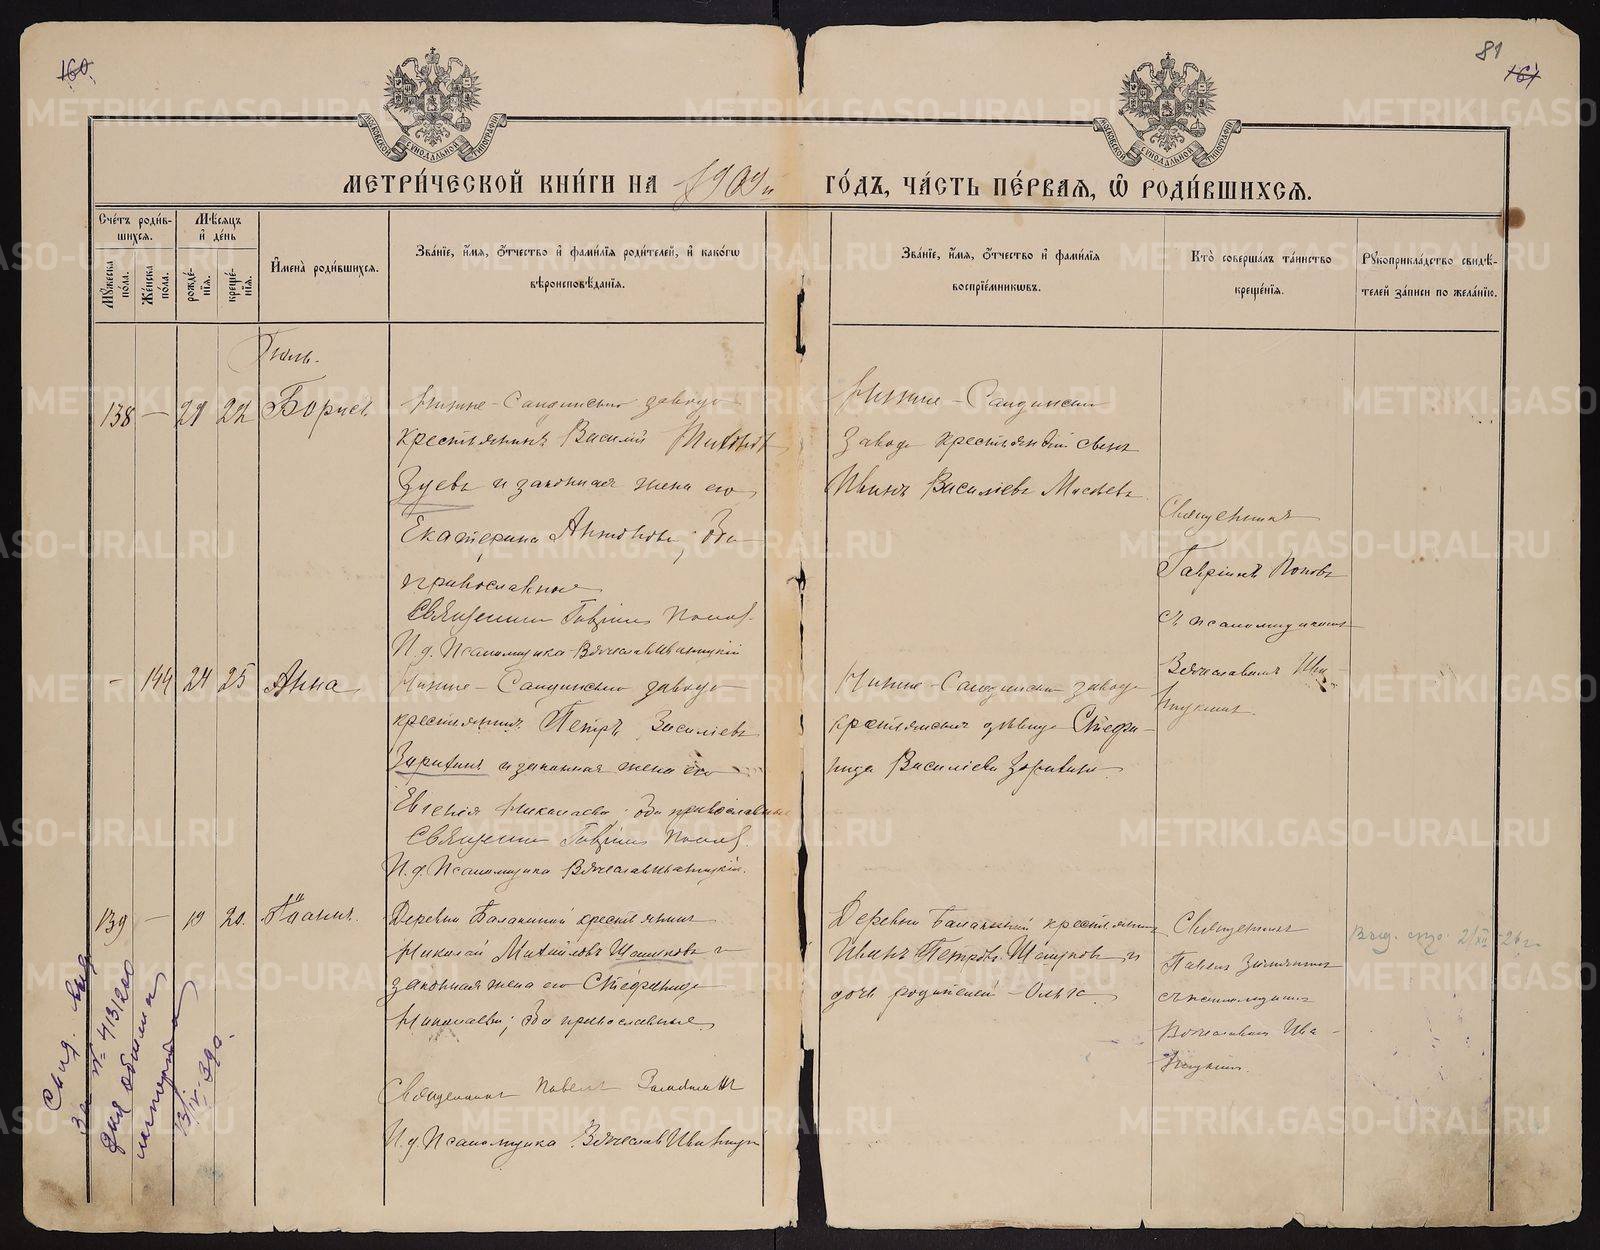 160.
81
161
МОСКОВСКОЙ СѴНОДАЛЬНОЙ ТИПОГРАФІИ
МОСКОВСКОЙ СѴНОДАЛЬНОЙ ТИПОГРАФІИ
МЕТРИ́ЧЕСКОЙ КНИ́ГИ НА 1909й ГО́ДЪ, ЧА́СТЬ ПЕ́РВАЯ, Ѡ҆ РОДИ́ВШИХСЯ.
Сче́тъ роди́в-
шихся.
Му́жеска по́ла.
Же́нска по́ла.
Мѣ́сяцъ
и҆ де́нь
рожде́-
нїя.
креще́-
нїя.
И҆мена̀ роди́вшихся.
Зва́нїе, и҆́мя, ѻ҆́тчество и҆ фами́лїя роди́телей, и҆ како́гѡ
вѣроисповѣ́данїя.
Зва́нїе, и҆́мя, ѻ҆́тчество и҆ фами́лїя
воспрїе́мниковъ.
Кто̀ соверша́лъ та́инство
креще́нїя.
Рꙋкоприкла́дство свидѣ́-
телей за́писи по жела́нїю.
Іюль.
138 — 21 22 Борисъ
Нижне-Салдинскаго завода
крестьянинъ Василій
Зуевъ и законная жена его
Екатерина Антонова; оба
православные
Священникъ Гавріилъ Поповъ.
И. д. Псаломщика Вячеславъ Иваницкій
Нижне-Салдинскаго
завода крестьянскій сынъ
Иванъ Васильевъ
Священникъ
Гавріилъ Поповъ
съ псаломщикомъ
Вячеславомъ Ива-
ницкимъ.
— 144 24 25 Анна
Нижне-Салдинскаго завода
крестьянинъ Петръ Васильевъ
и законная жена его
Евгенія Николаева; оба православные
Священникъ Гавріилъ Поповъ.
И. д. Псаломщика Вячеславъ Иваницкій.
Нижне-Салдинскаго завода
крестьянская дѣвица Стефа-
нида Васильева
139 — 19 20. Іоаннъ.
Деревни Балакиной крестьянинъ
Николай Михайловъ и
законная жена его Стефанида
Николаева; оба православные
Священникъ Павелъ
И. д. Псаломщика Вячеславъ Иваницкій
Деревни Балакиной крестьянинъ
Иванъ Петровъ и
дочь родителей — Ольга
Священникъ
Павелъ
съ псаломщикомъ
Вячеславомъ Ива-
ницкимъ.
Выд. 2/XII-26 г.
Свид. выд.
за № 413/200
для обмена
паспорта
13/IV-39г.
METRIKI.GASO-URAL.RU